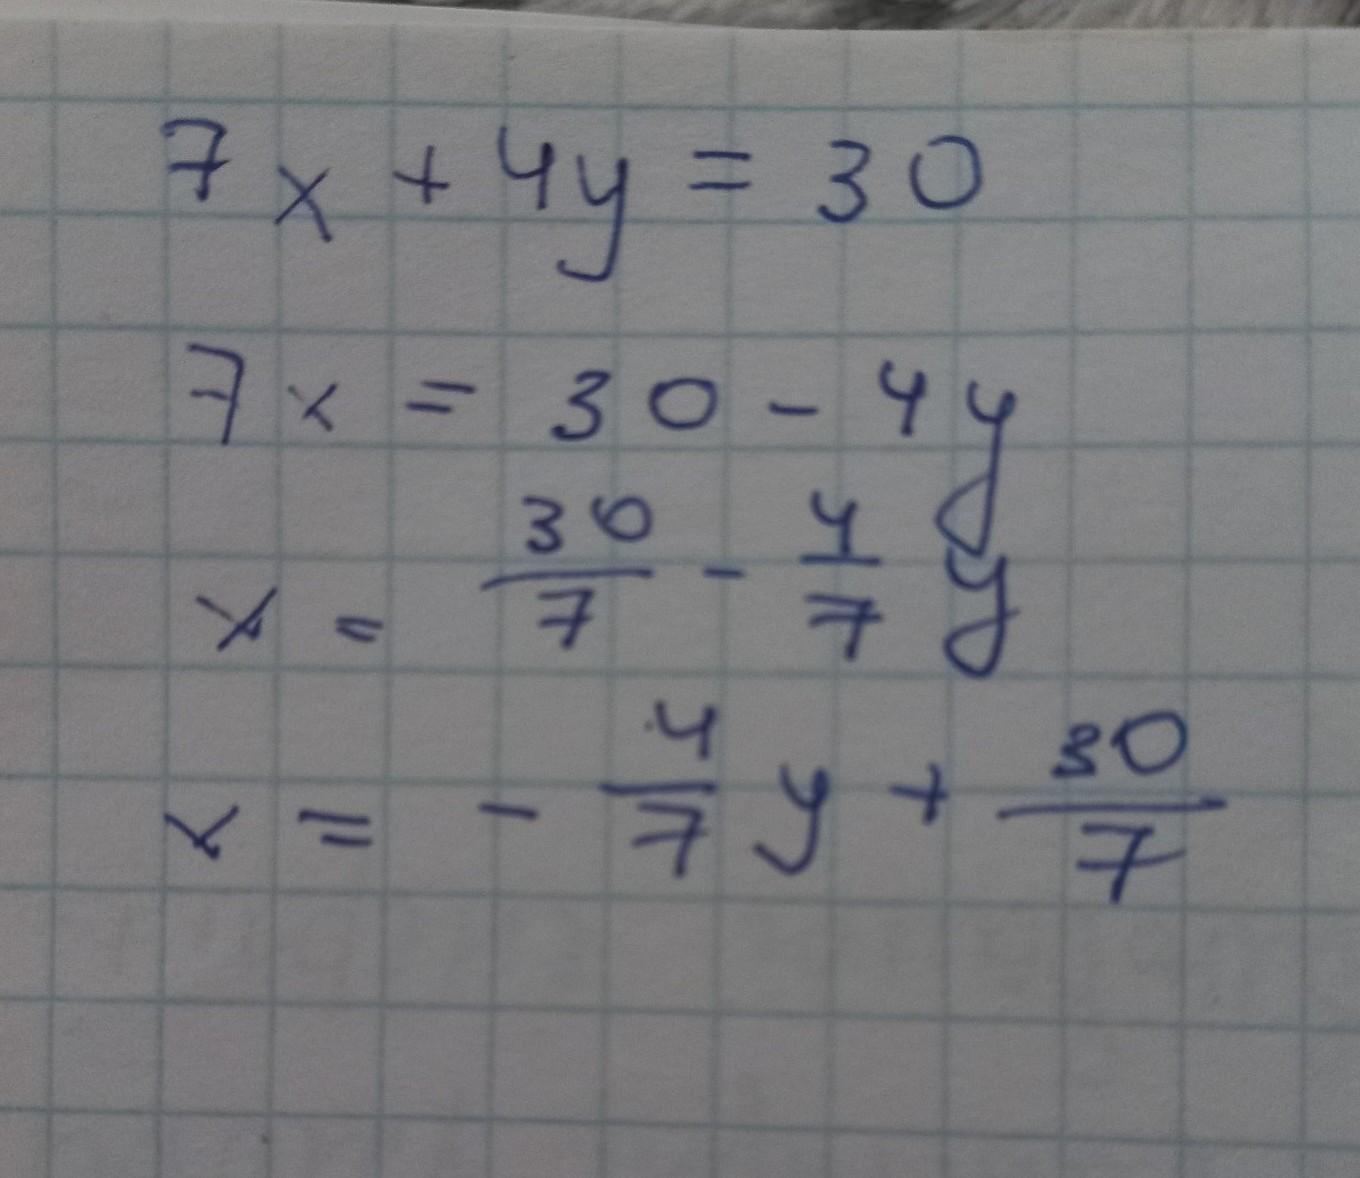 7x + 4y = 30
7x = 30 - 4y
x = 30/7 - 4/7 y
x = - 4/7 y + 30/7